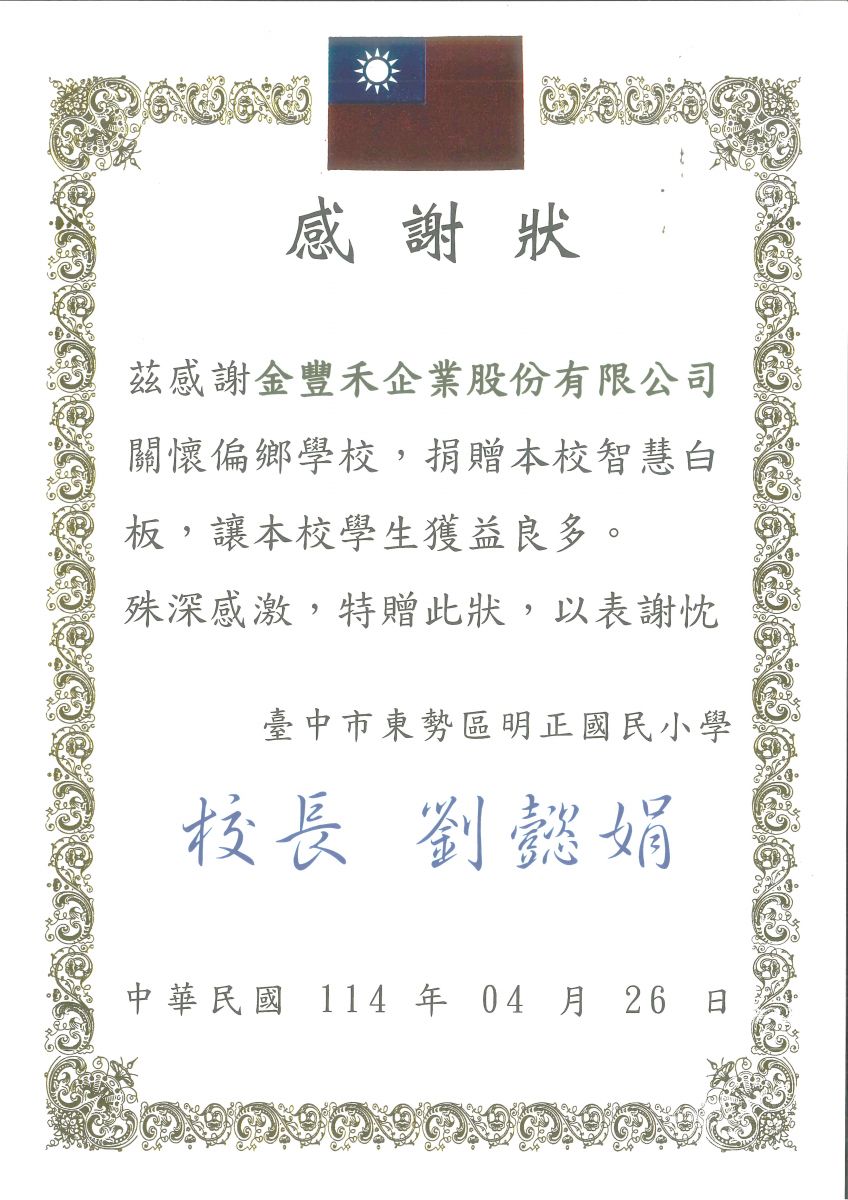 感謝狀
茲感謝金豐禾企業股份有限公司
關懷偏鄉學校，捐贈本校智慧白
板，讓本校學生獲益良多。
殊深感激，特贈此狀，以表謝忱
臺中市東勢區明正國民小學
校長 劉懿娟
中華民國 114 年 04 月 26 日